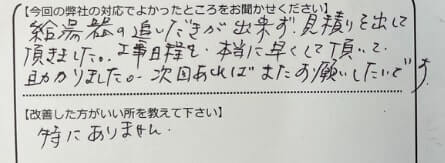 【今回の弊社の対応でよかったところをお聞かせください】
給湯器の追いだきが出来ず、見積りを出して
頂きました。工事日程も、本当に早くして頂いて
助かりました。次回あればまたお願いしたいです
【改善した方がいい所を教えて下さい】
特にありません.